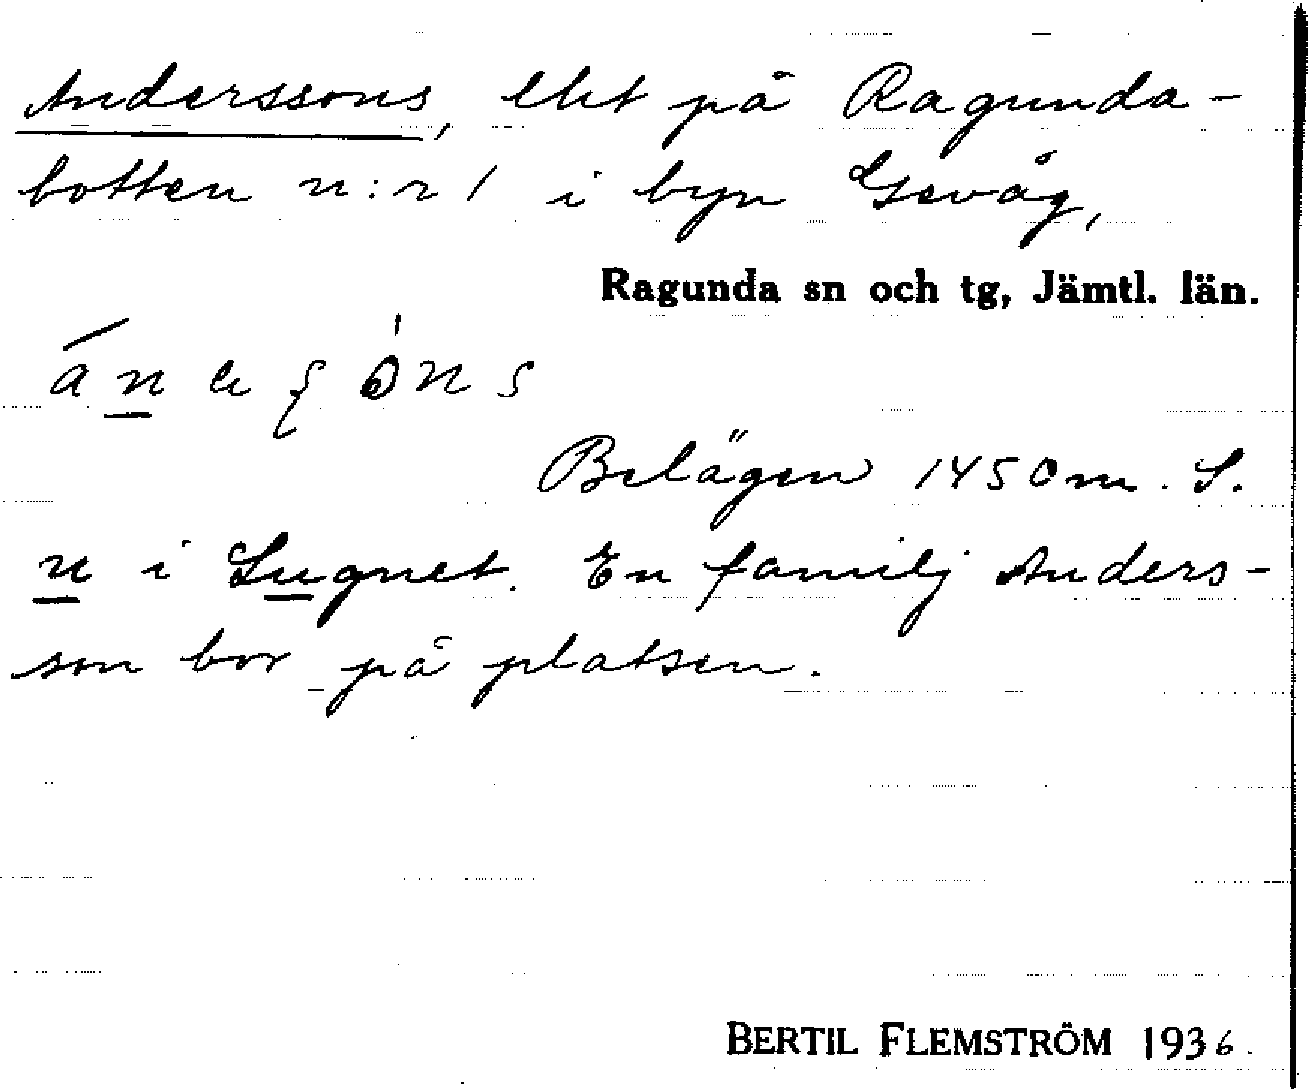 Anderssons, lht på Ragunda-
botten n:r 1 i byn Gevåg,
Ragunda sn och tg, Jämtl. län.
Belägen 1450 m. S.
u i Lugnet. En familj Anders-
son bor på platsen.
BERTIL FLEMSTRÖM 1936.